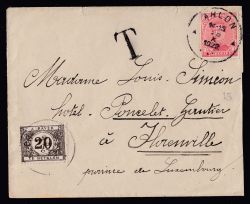 ARLON
1922
T
Madame Louis Siméon
hotel Poncelet-Gautier
à Florenville
province de Luxembourg
15
A PAYER
20
TE BETALEN